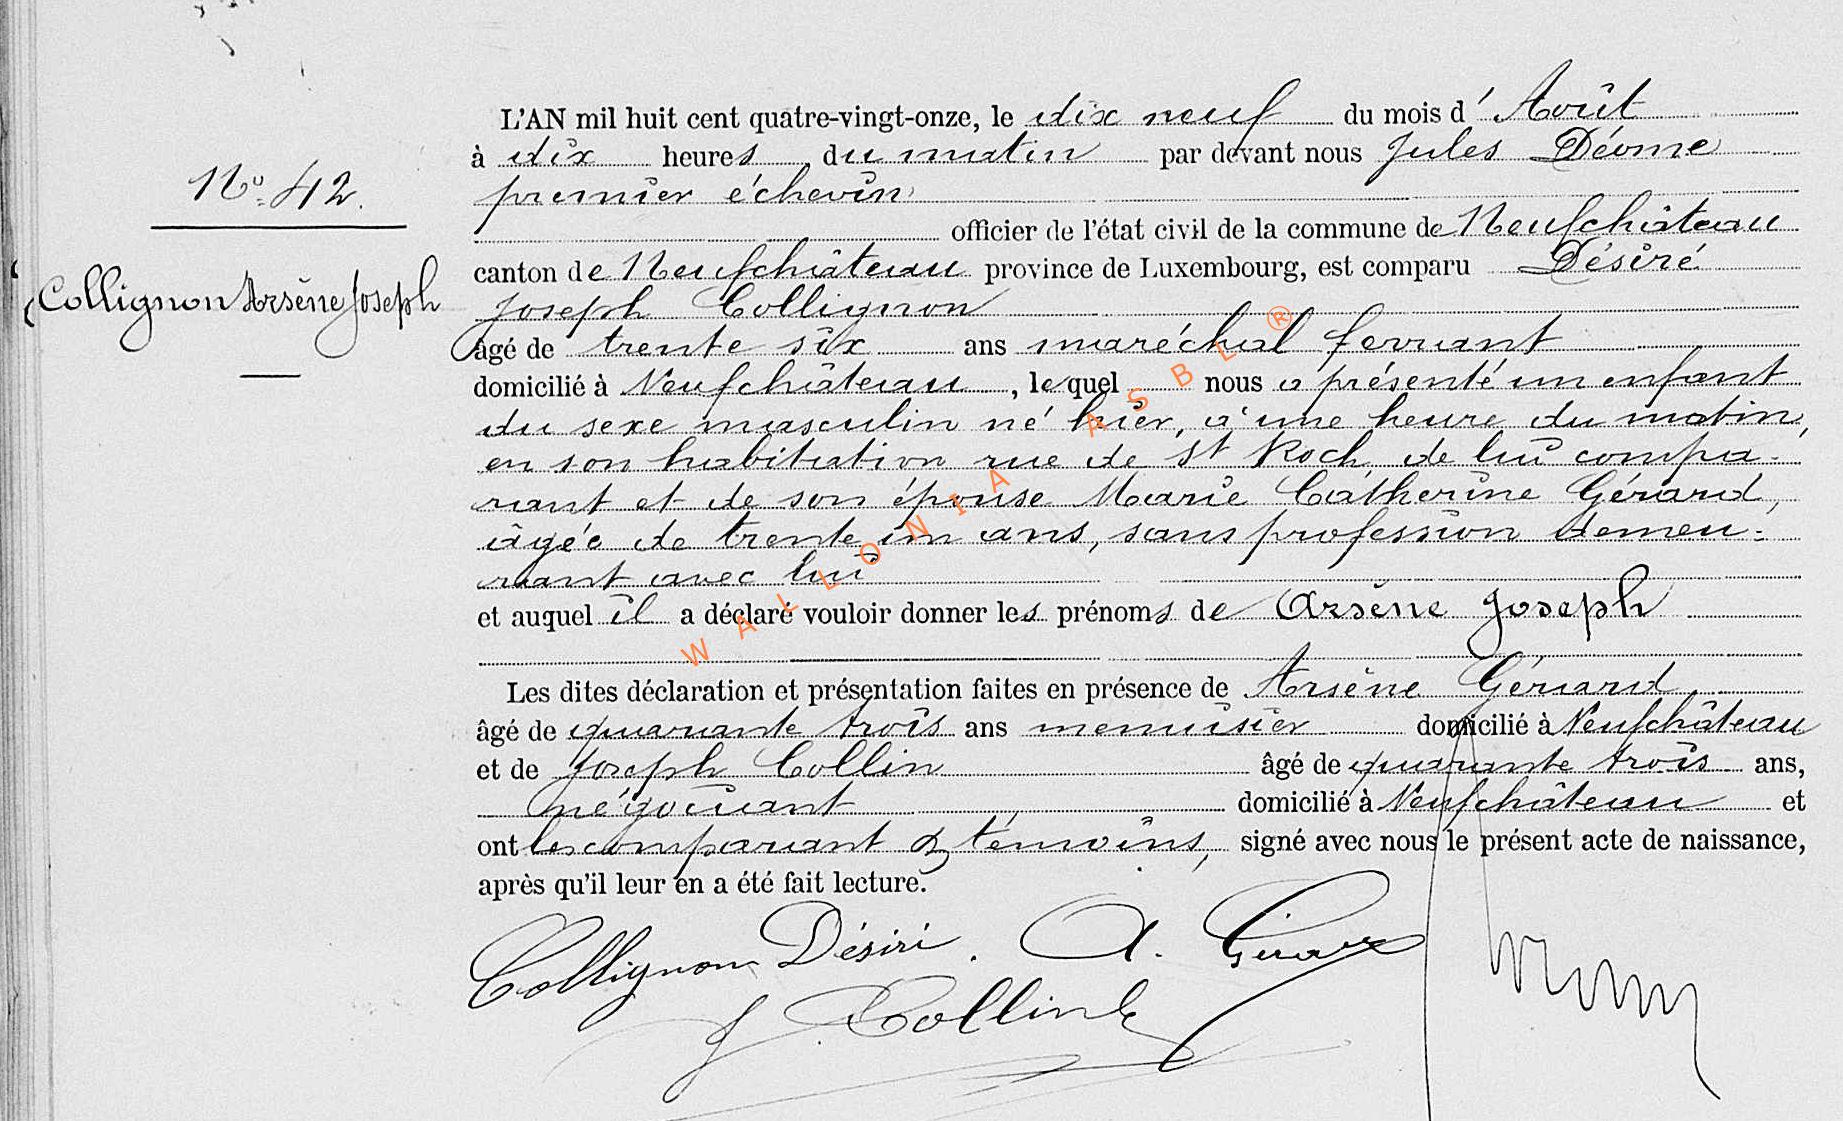 L'AN mil huit cent quatre-vingt-onze, le dix neuf du mois d' Août
à dix heures du matin par devant nous Jules Déome
premier échevin
officier de l'état civil de la commune de Neufchâteau
canton de Neufchâteau province de Luxembourg, est comparu Désiré
Joseph Collignon
âgé de trente six ans maréchal ferrant
domicilié à Neufchâteau, lequel nous a présenté un enfant
du sexe masculin né hier, à une heure du matin,
en son habitation rue de St Roch, de lui compa-
rant et de son épouse Marie Catherine Gérard,
âgée de trente un ans, sans profession demeu-
rant avec lui
et auquel il a déclaré vouloir donner les prénoms de Arsène Joseph
Les dites déclaration et présentation faites en présence de Arsène Gérard,
âgé de quarante trois ans menuisier domicilié à Neufchâteau
et de Joseph Collin âgé de quarante trois ans,
négociant domicilié à Neufchâteau et
ont les comparant & témoins, signé avec nous le présent acte de naissance,
après qu'il leur en a été fait lecture.
Collignon Désiré. A. Gérard
J. Collin
No. 42.
Collignon Arsène Joseph
WALLONIA ASBL ®